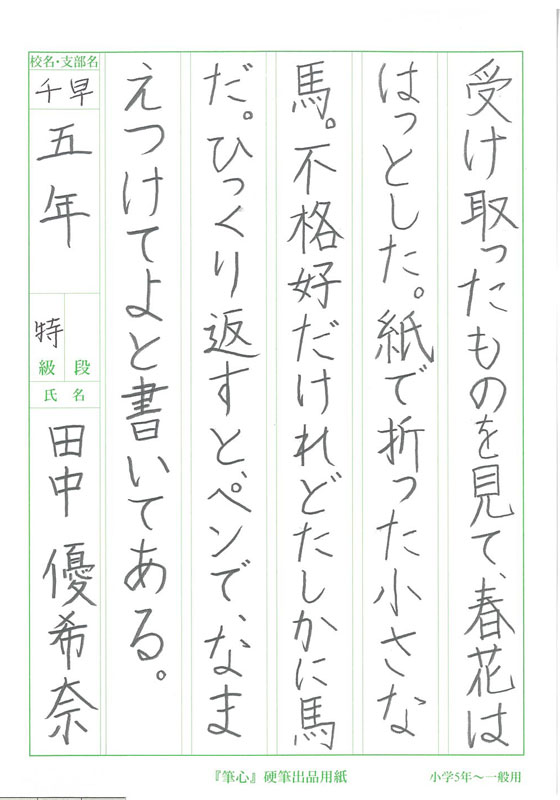 受け取ったものを見て、春花は
はっとした。紙で折った小さな
馬。不格好だけれどたしかに馬
だ。ひっくり返すと、ペンで、なま
えつけてよと書いてある。
校名・支部名
千早
五年
特
級 段
氏 名
田中 優希奈
『筆心』硬筆出品用紙
小学5年〜一般用